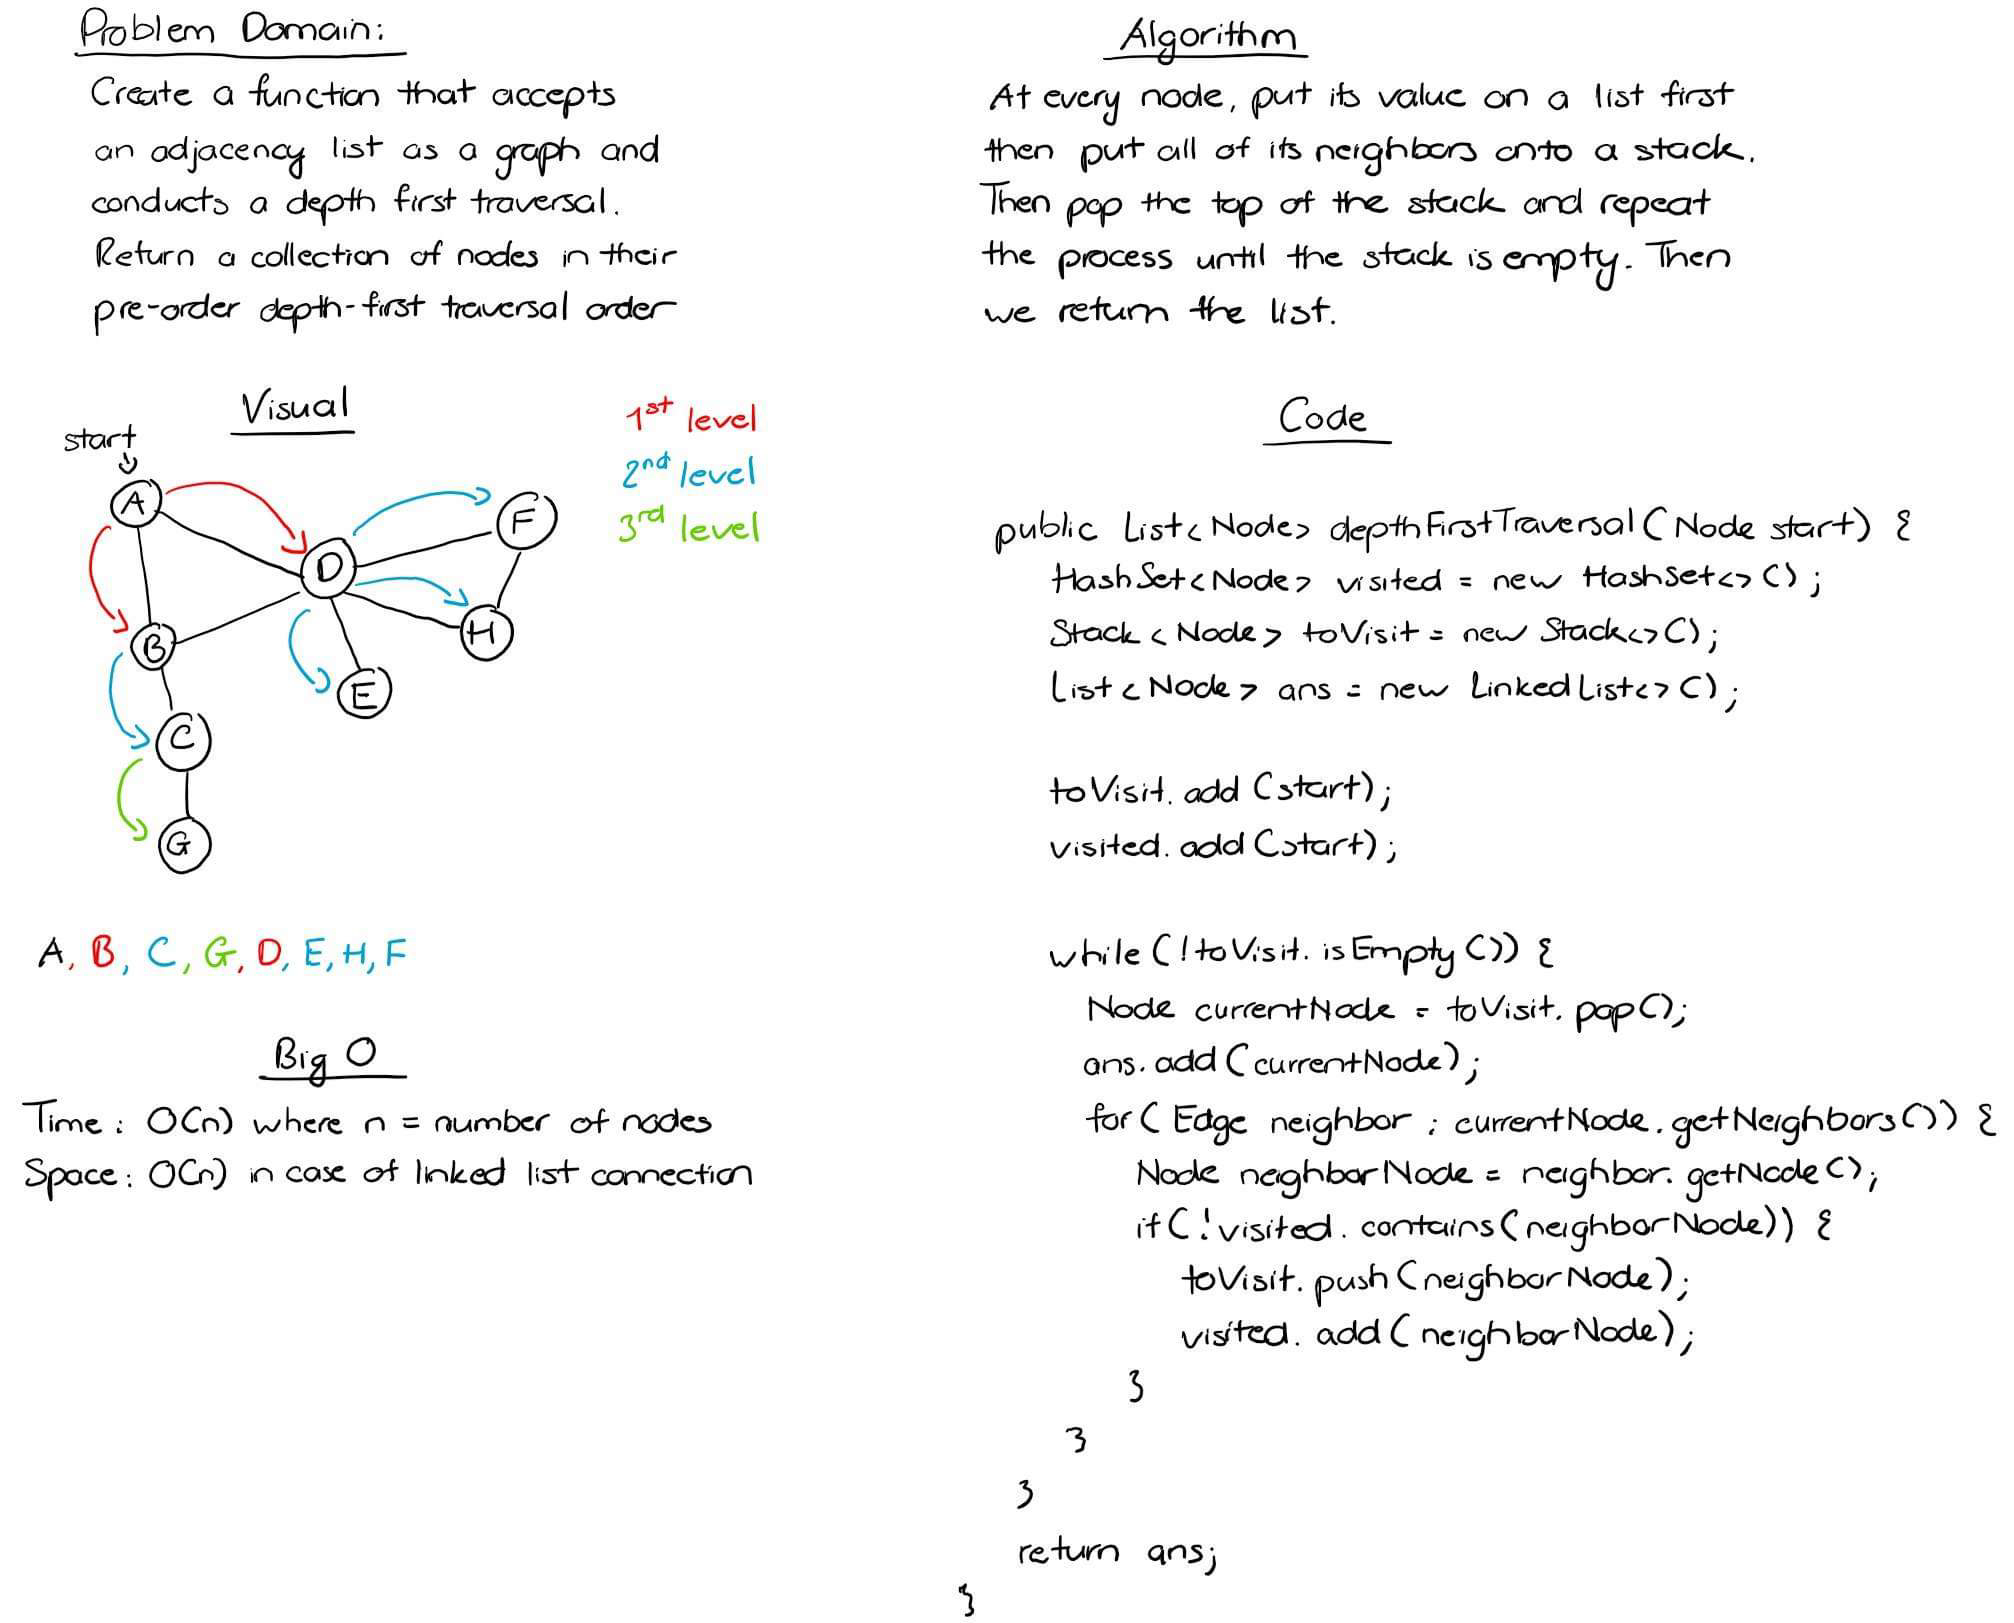 Problem Domain:
Create a function that accepts
an adjacency list as a graph and
conducts a depth first traversal.
Return a collection of nodes in their
pre-order depth-first traversal order
Visual
start
1st level
2nd level
3rd level
A
F
D
H
B
E
C
G
A, B, C, G, D, E, H, F
Big O
Time: O(n) where n = number of nodes
Space: O(n) in case of linked list connection
Algorithm
At every node, put its value on a list first
then put all of its neighbors onto a stack.
Then pop the top of the stack and repeat
the process until the stack is empty. Then
we return the list.
Code
public List<Node> depthFirstTraversal(Node start) {
HashSet<Node> visited = new HashSet<>();
Stack<Node> toVisit = new Stack<>();
List<Node> ans = new LinkedList<>();
toVisit.add(start);
visited.add(start);
while(!toVisit.isEmpty()) {
Node currentNode = toVisit.pop();
ans.add(currentNode);
for(Edge neighbor : currentNode.getNeighbors()) {
Node neighborNode = neighbor.getNode();
if(!visited.contains(neighborNode)) {
toVisit.push(neighborNode);
visited.add(neighborNode);
}
}
}
return ans;
}